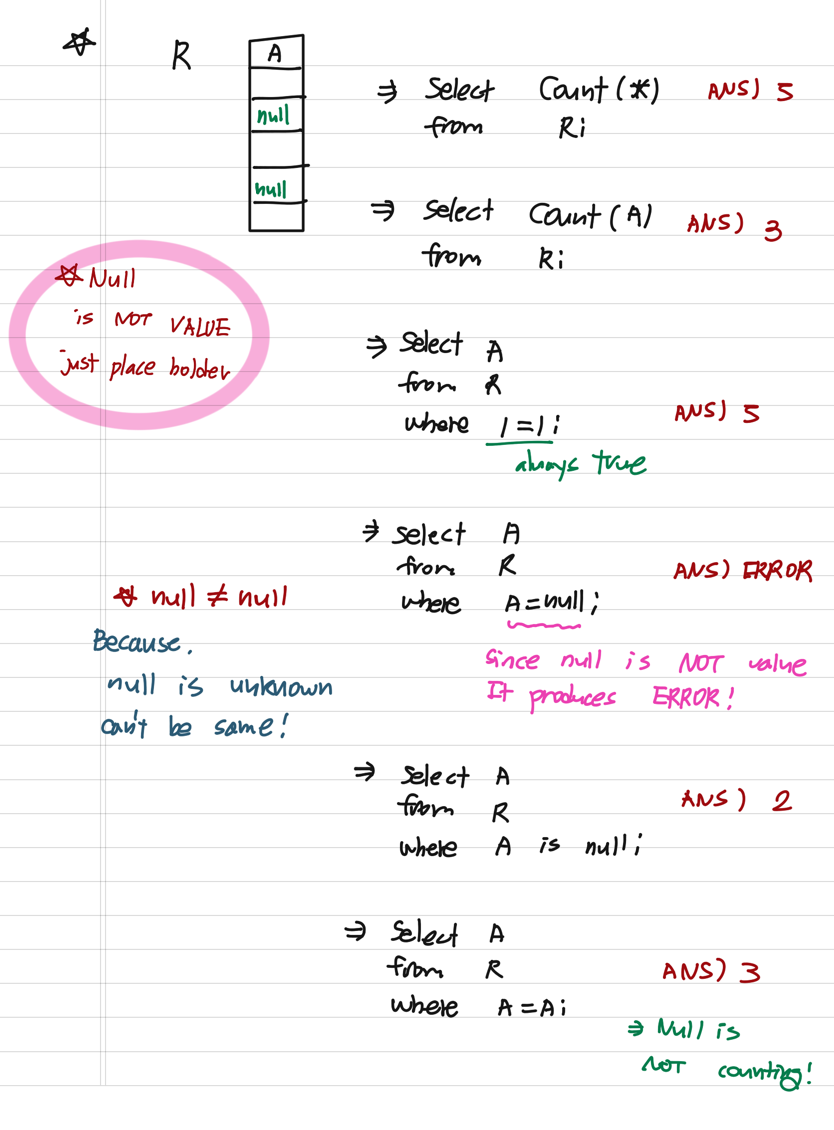 ☆ R A
null
null
⇒ Select Count(*) ANS) 5
from R;
⇒ Select Count(A) ANS) 3
from R;
☆ Null
is NOT VALUE
just place holder
⇒ Select A
from R
where 1=1; ANS) 5
always true
⇒ Select A
from R ANS) ERROR
where A=null;
☆ null ≠ null
Because,
null is unknown
can't be same!
Since null is NOT value
It produces ERROR!
⇒ Select A
from R ANS) 2
where A is null;
⇒ Select A
from R ANS) 3
where A=A;
⇒ Null is
NOT counting!